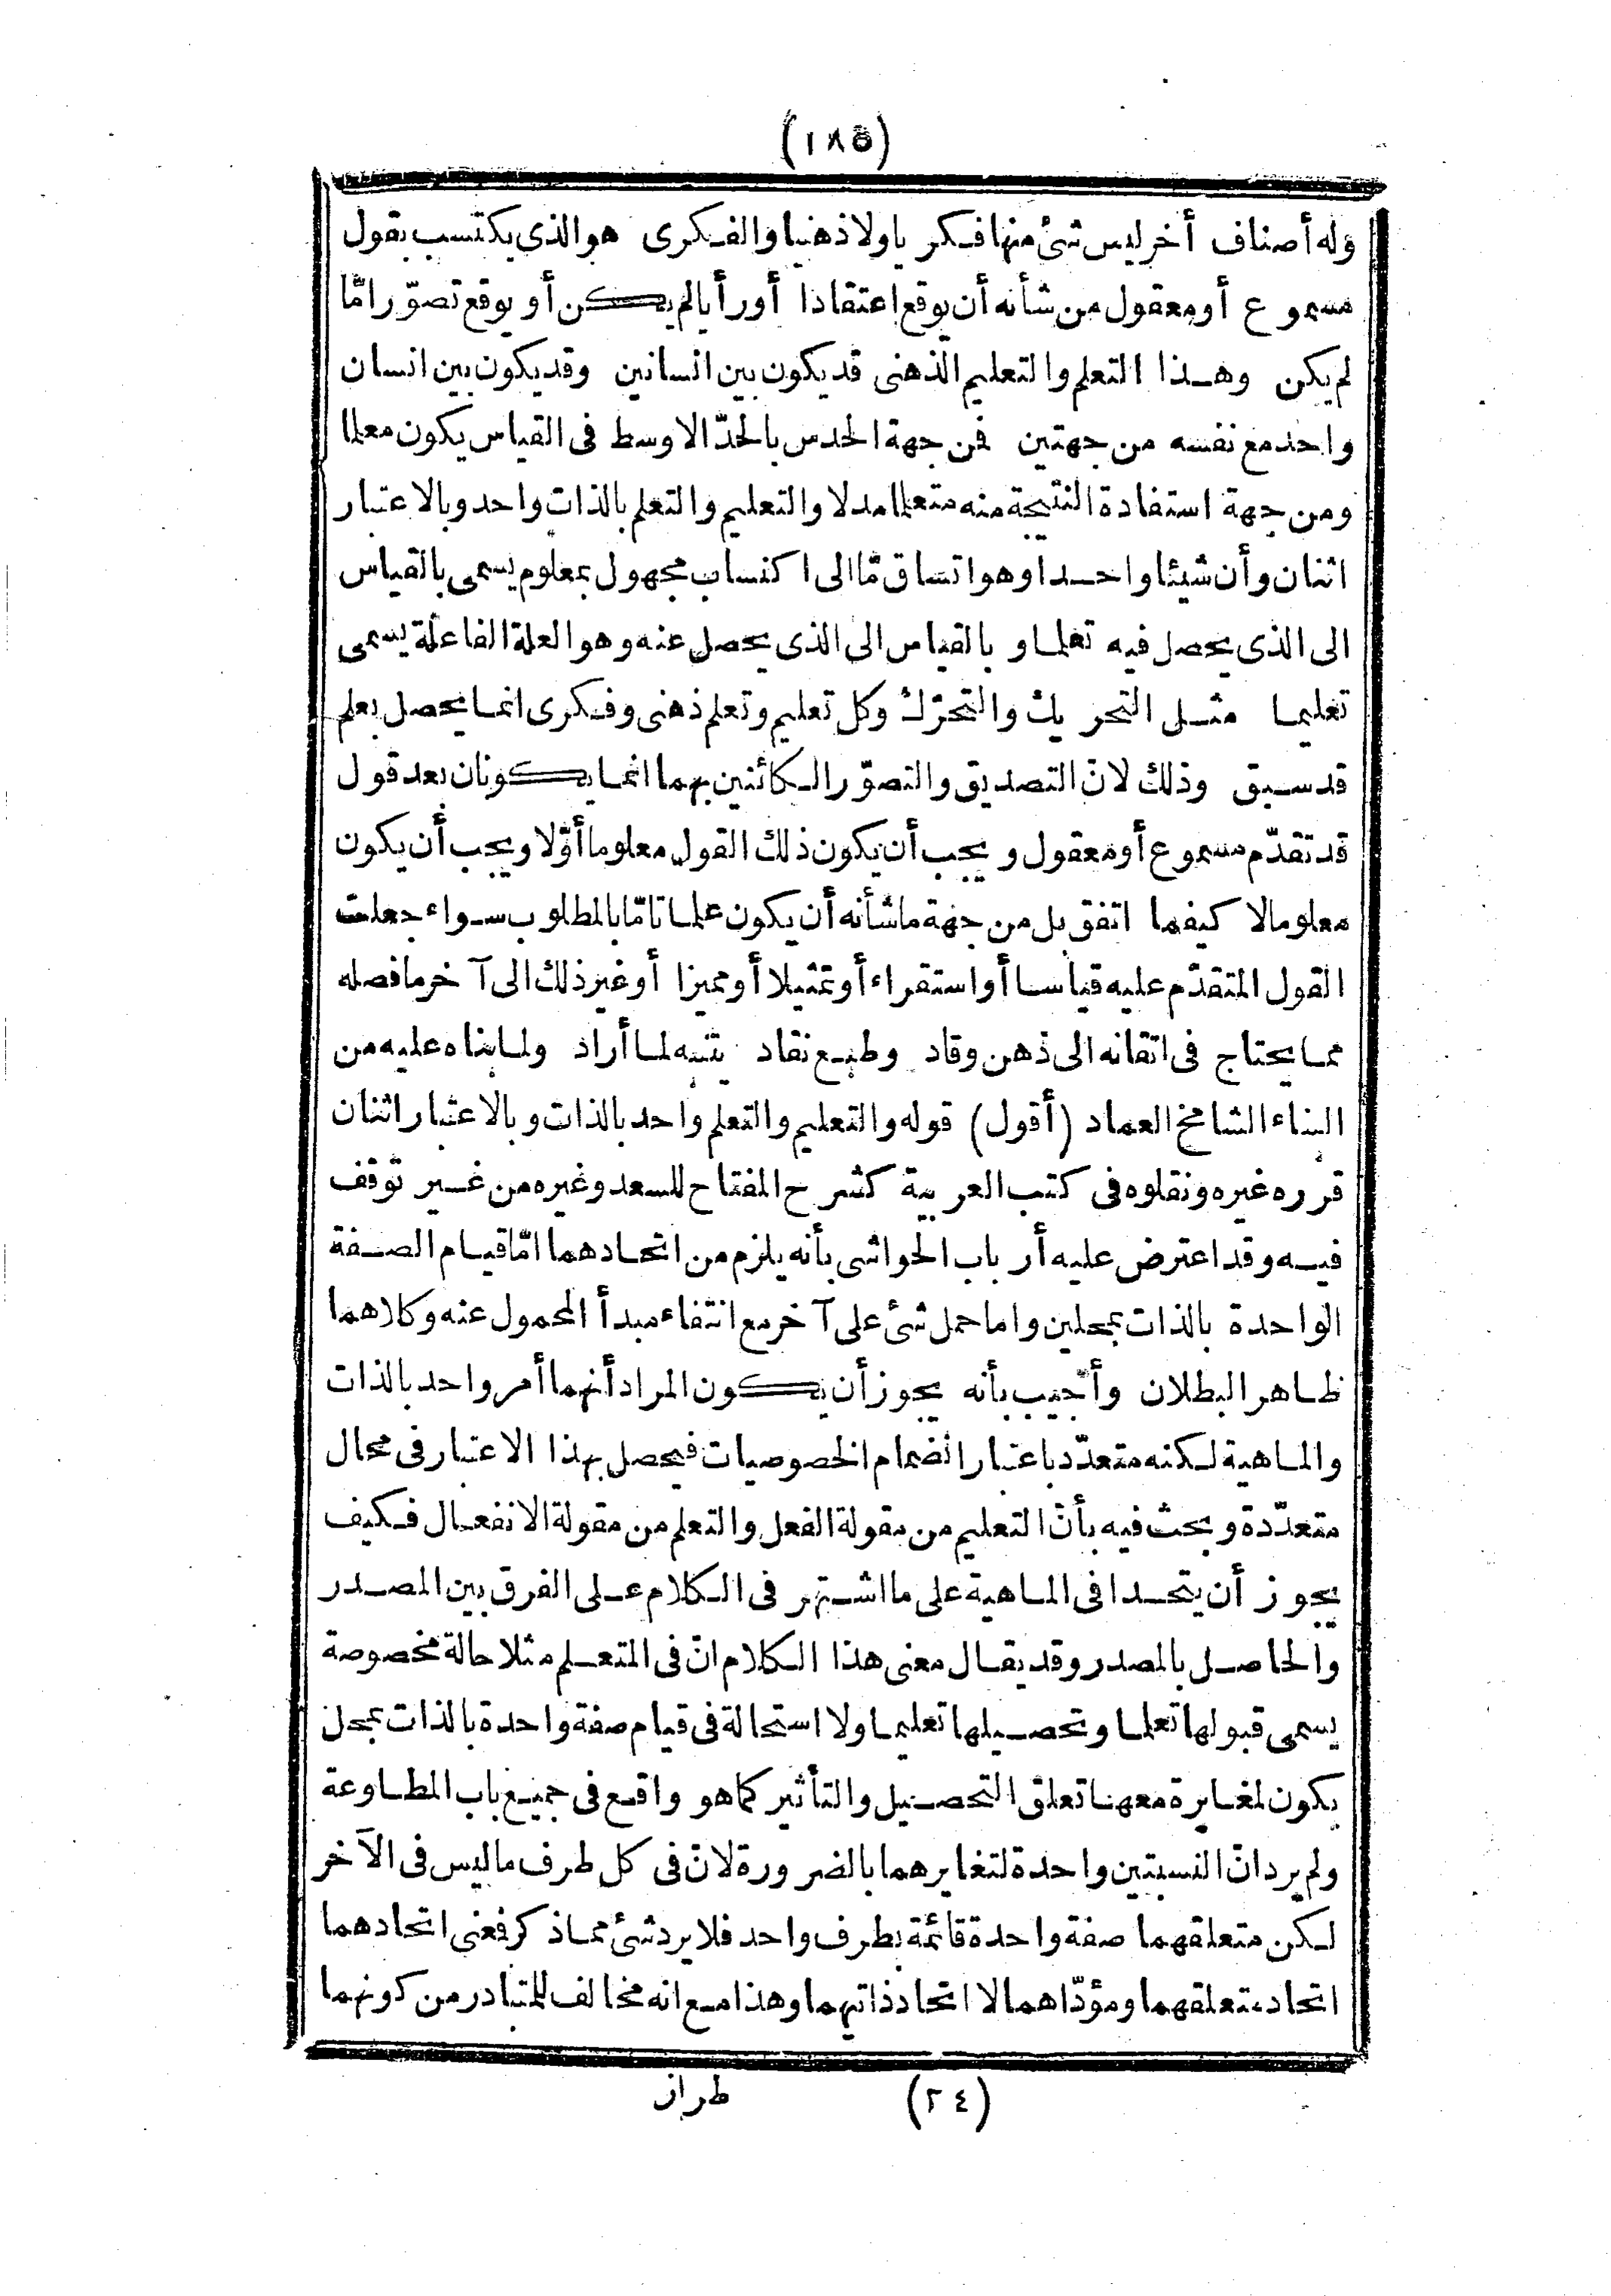 (١٨٥)
وله أصناف أخر ليس شئ منها فكريا ولا ذهنيا والفكرى هو الذى يكتسب بقول
مسموع أو معقول من شأنه أن يوقع اعتقادا أو رأيا لم يكن أو يوقع تصوّرا مّا
لم يكن وهذا التعلم والتعليم الذهنى قد يكون بين انسانين وقد يكون بين انسان
واحد مع نفسه من جهتين فمن جهة الحدس بالحدّ الاوسط فى القياس يكون معلما
ومن جهة استفادة النتيجة منه متعلما مدلا والتعليم والتعلم بالذات واحد وبالاعتبار
اثنان وأن شيئا واحدا وهو اتساق مّا الى اكتساب مجهول بمعلوم يسمى بالقياس
الى الذى يحصل فيه تعلما وبالقياس الى الذى يحصل عنه وهو العلة الفاعلة يسمى
تعليما مثل التحريك والتحرّك وكل تعليم وتعلم ذهنى وفكرى انما يحصل بعلم
قد سبق وذلك لانّ التصديق والتصوّر الكائنين بهما انما يكونان بعد قول
قد تقدّم مسموع أو معقول ويجب أن يكون ذلك القول معلوما أوّلا ويجب أن يكون
معلوما لا كيفما اتفق بل من جهة ما شأنه أن يكون علما تامّا بالمطلوب سواء جعلت
القول المتقدّم عليه قياسا أو استقراء أو تمثيلا أو مميزا أو غير ذلك الى آخر ما فصله
مما يحتاج فى اتقانه الى ذهن وقاد وطبع نقاد يتنبه لما أراد ولما بناه عليه من
البناء الشامخ العماد (أقول) قوله والتعليم والتعلم واحد بالذات وبالاعتبار اثنان
قرره غيره ونقلوه فى كتب العربية كشرح المفتاح للسعد وغيره من غير توقف
فيه وقد اعترض عليه أرباب الحواشى بأنه يلزم من اتحادهما امّا قيام الصفة
الواحدة بالذات بمحلين واما حمل شئ على آخر مع انتفاء مبدأ المحمول عنه وكلاهما
ظاهر البطلان وأجيب بأنه يجوز أن يكون المراد أنهما أمر واحد بالذات
والماهية لكنه متعدّد باعتبار انضمام الخصوصيات فيحصل بهذا الاعتبار فى محال
متعدّدة وبحث فيه بأنّ التعليم من مقولة الفعل والتعلم من مقولة الانفعال فكيف
يجوز أن يتحدا فى الماهية على ما اشتهر فى الكلام على الفرق بين المصدر
والحاصل بالمصدر وقد يقال معنى هذا الكلام انّ فى المتعلم مثلا حالة مخصوصة
يسمى قبولها تعلما وتحصيلها تعليما ولا استحالة فى قيام صفة واحدة بالذات بمحل
يكون لمغايرة معهنا تعلق التحصيل والتأثير كما هو واقع فى جميع باب المطاوعة
ولم يرد انّ النسبتين واحدة لتغايرهما بالضرورة لانّ فى كل طرف ما ليس فى الآخر
لكن متعلقهما صفة واحدة قائمة بطرف واحد فلا يرد شئ مما ذكر فمعنى اتحادهما
اتحاد متعلقهما ومؤدّاهما لا اتحاد ذاتيهما وهذا مع انه مخالف للمتبادر من كونهما
(٢٤) طراز